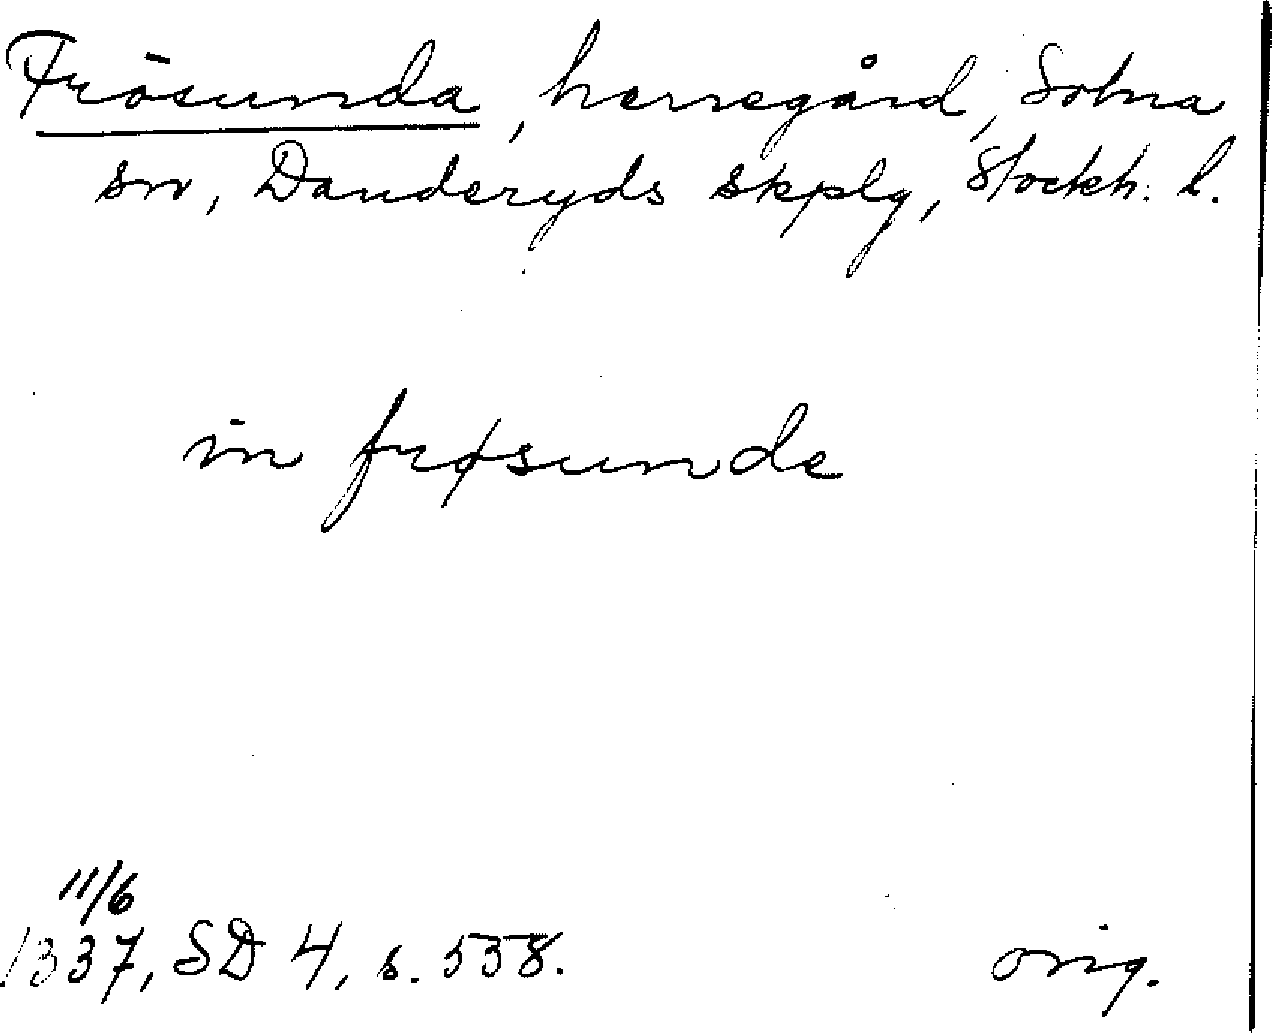 Frösunda, herregård, Solna
sn, Danderyds skplg, Stockh. l.
in frøsunde
11/6
1337, SD 4, s. 538.
orig.